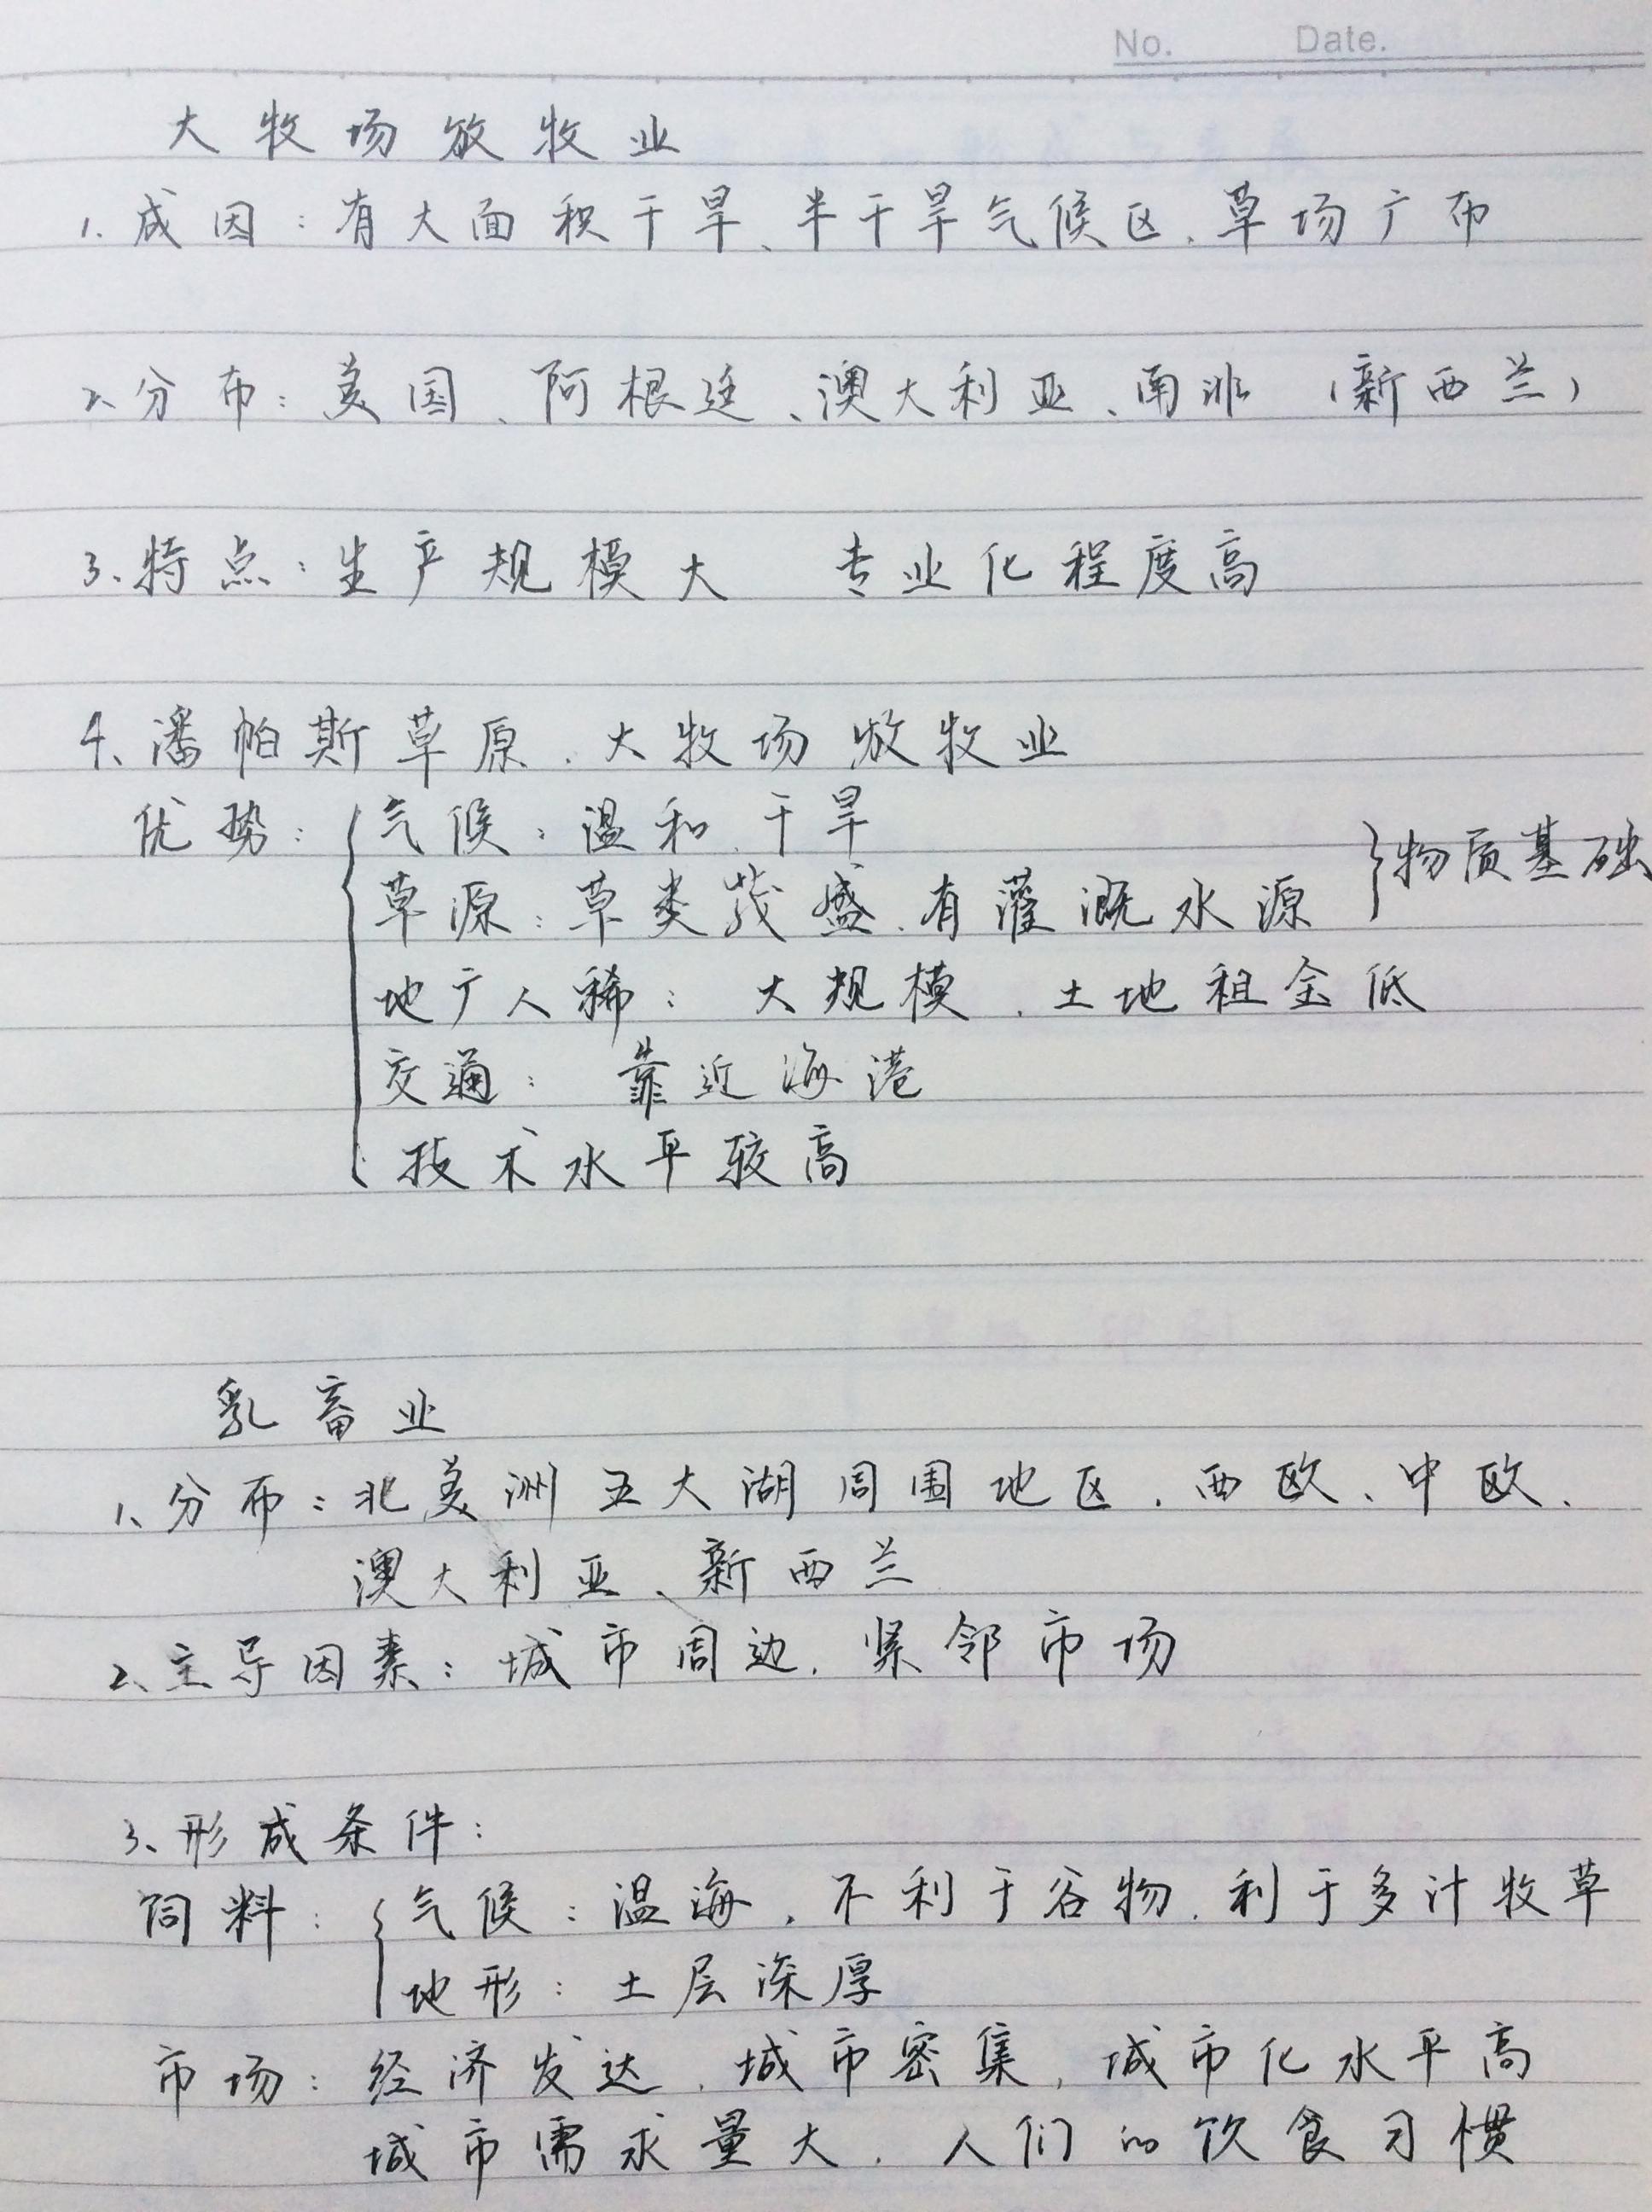 No. Date.
大牧场放牧业
1. 成因：有大面积干旱、半干旱气候区，草场广布
2、分布：美国、阿根廷、澳大利亚、南非（新西兰）
3、特点：生产规模大 专业化程度高
4、潘帕斯草原，大牧场放牧业
优势：气候：温和，干旱
草源：草类茂盛，有灌溉水源 }物质基础
地广人稀：大规模，土地租金低
交通：靠近海港
技术水平较高
乳畜业
1、分布：北美洲五大湖周围地区，西欧、中欧、
澳大利亚、新西兰
2、主导因素：城市周边，紧邻市场
3、形成条件：
饲料：{气候：温海，不利于谷物，利于多汁牧草
地形：土层深厚
市场：经济发达，城市密集，城市化水平高
城市需求量大，人们的饮食习惯